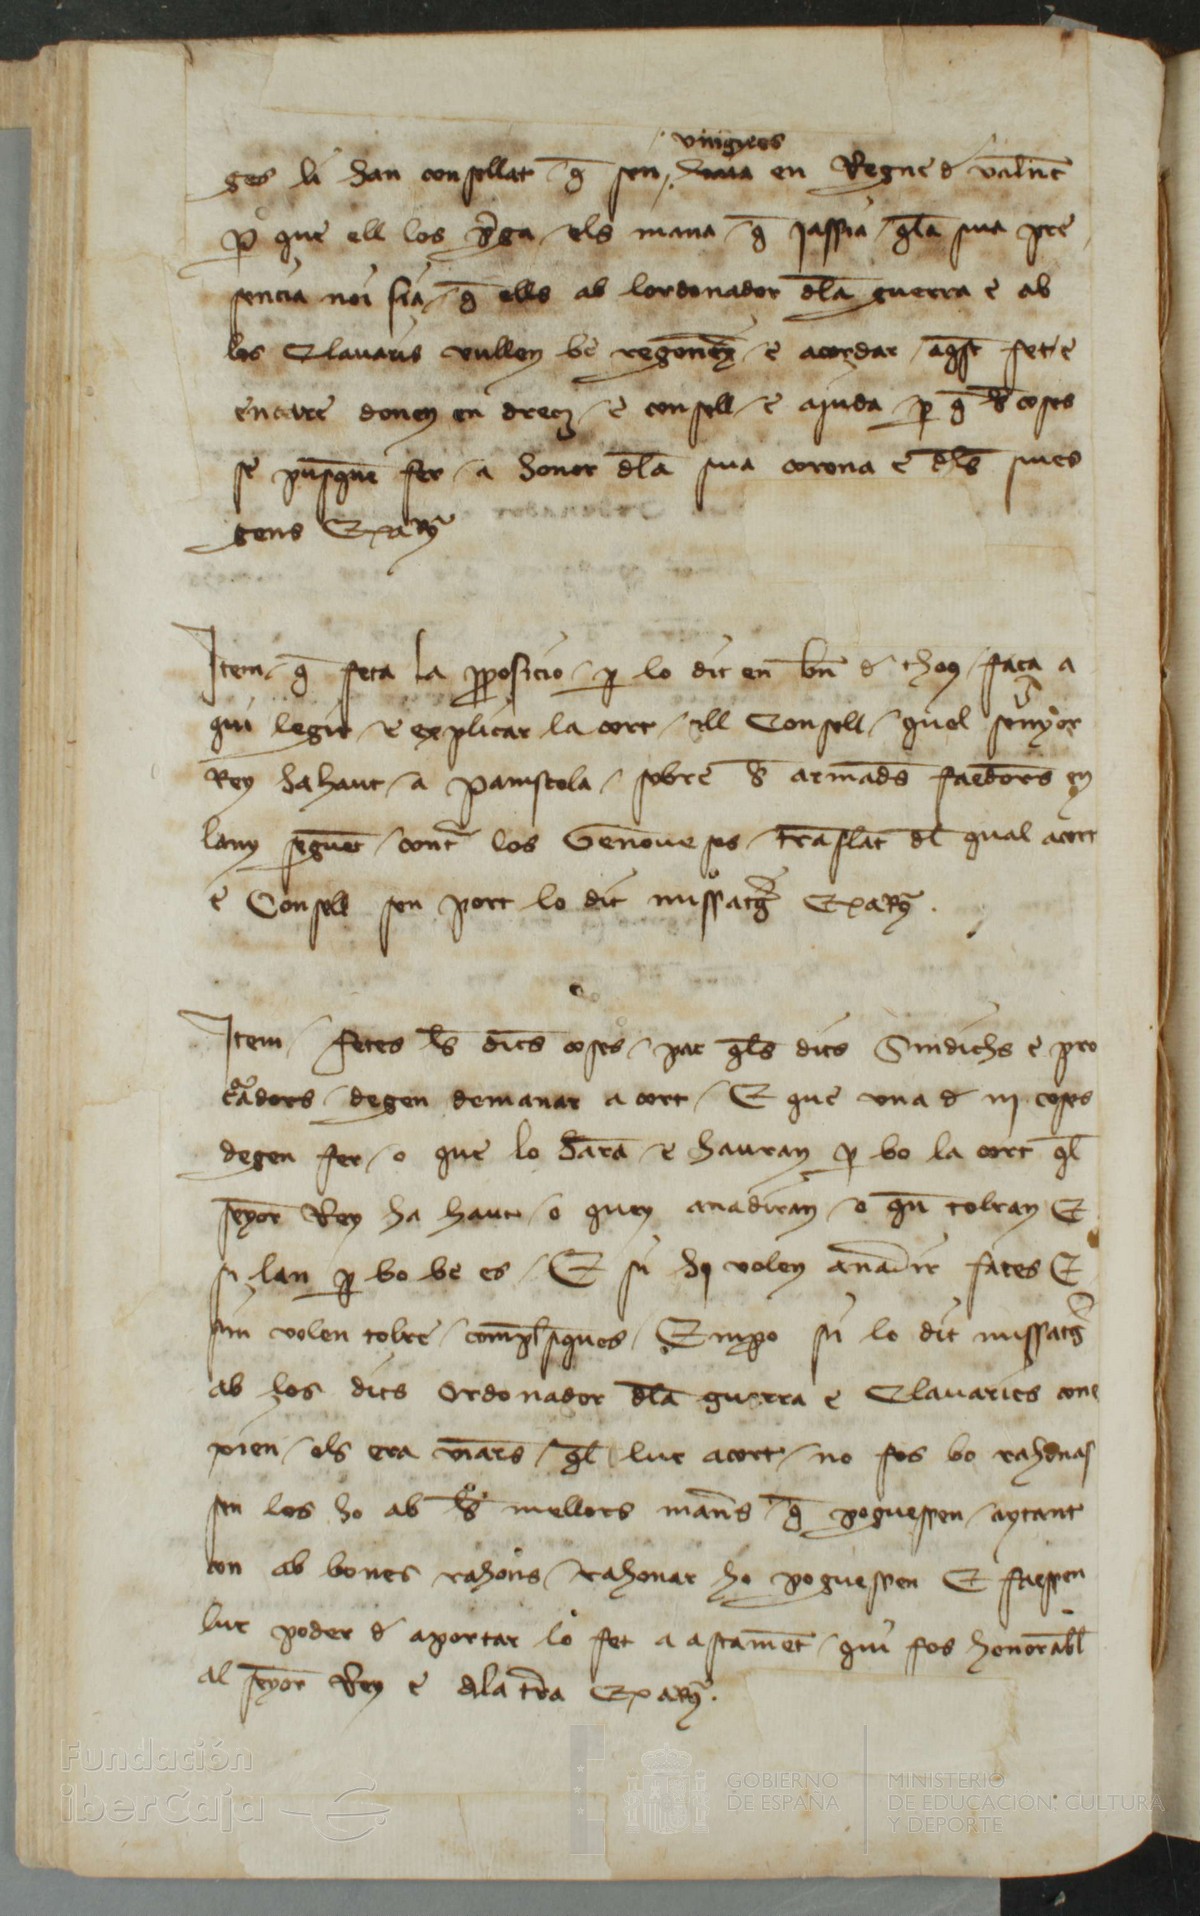 vingues
ges li han consellat q̄ sen en Regne d valēc
p que ell los p̄ga els mana q̄ jassia q̄la sua pre
sencia noi sia q̄ ells ab lordonador d̄la guerra e ab
los Clauaris vullen be regonex̄ e acordar aq̄st fet e
encare donen en drecz e consell e ajuda p q̄ l̄s coses
se pusquē fer a honor d̄la sua corona e d̄ls sues
gens Exᵃ Rᵗ
Item q̄ feta la p̱posicio p lo dit en bñ d thoȝ faça a
qui legir e explicar la cort ell Consell quel senyor
Rey ha haut a paniscola sobre l̄s armad̄s faedors en
lany seguēt cont̄ los Genoueses traslat dl̄ qual acort
e Consell sen port lo dit missatḡ
Item fetes l̄s dit̄s coses par q̄ls dits Sindichs e pro
cadors degen demanar acort E que vna d iij coses
degen fer o que lo hara e hauran p bo la cort q̄l
seyor Rey ha haut o quey anadiran o quē tolran E
si lan p bo be es E si hy volen anadir fates E
sin volen tolre complisques Empo si lo dit missatḡ
ab los dits Ordonador d̄la guerra e Clauaries cone
xien els era viars q̄l lur acort no fos bo rahonas
sen los ho ab l̄s mellors man̄s q̄ poguessen aytant
con ab bones rahons rahonar ho poguessen E faessen
lur poder d aportar lo fet a astamēt qui fos honorabl̄
al seyor Rey e ala tr̄a
Fundación
iberCaja
GOBIERNO
DE ESPAÑA
MINISTERIO
DE EDUCACIÓN, CULTURA
Y DEPORTE